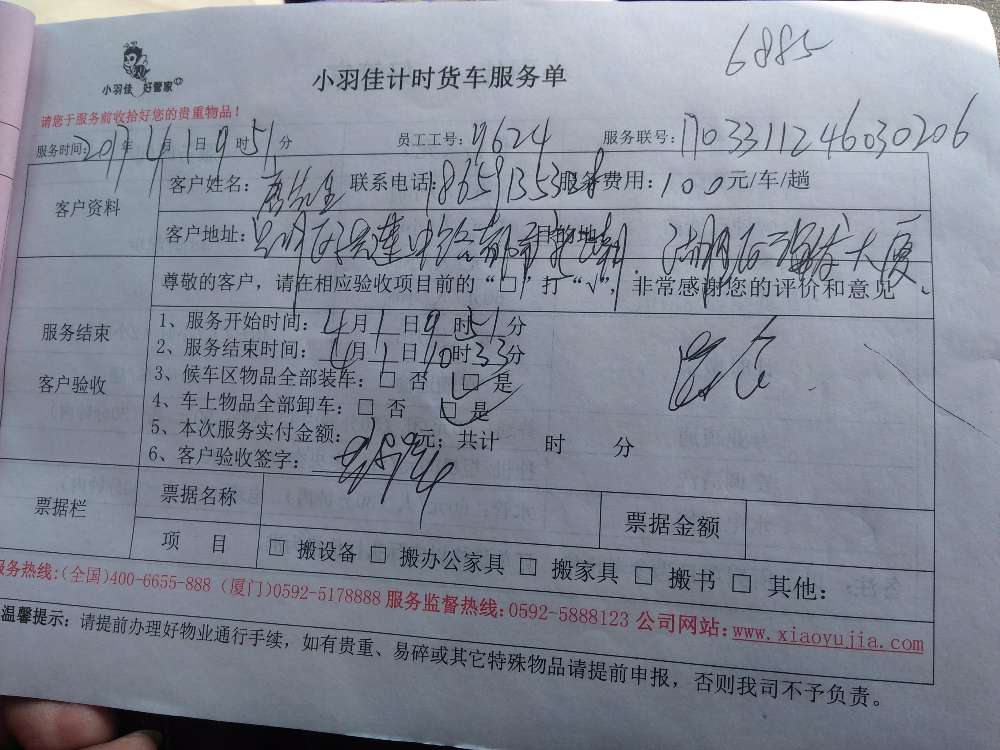 6885
小羽佳 好管家
小羽佳计时货车服务单
请您于服务前收拾好您的贵重物品！
服务时间: 2017年4月1日9时51分 员工工号: 9624 服务联号: 1703311246030206
客户资料
客户姓名: 联系电话: 服务费用: 100元/车/趟
客户地址: 目的地: 大厦
尊敬的客户，请在相应验收项目前的“□”打“√”，非常感谢您的评价和意见
服务结束
客户验收
1、服务开始时间: 4月1日9时51分
2、服务结束时间: 4月1日10时33分
3、候车区物品全部装车: □ 否 □ 是
4、车上物品全部卸车: □ 否 □ 是
5、本次服务实付金额: 元；共计 时 分
6、客户验收签字:
票据栏
票据名称 票据金额
项 目 □ 搬设备 □ 搬办公家具 □ 搬家具 □ 搬书 □ 其他:
服务热线:(全国)400-6655-888 (厦门)0592-5178888 服务监督热线:0592-5888123 公司网站:www.xiaoyujia.com
温馨提示: 请提前办理好物业通行手续，如有贵重、易碎或其它特殊物品请提前申报，否则我司不予负责。